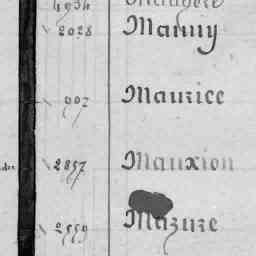 4934
2028 Mauny
902 Maurice
2857 Mauxion
2559 Mazure